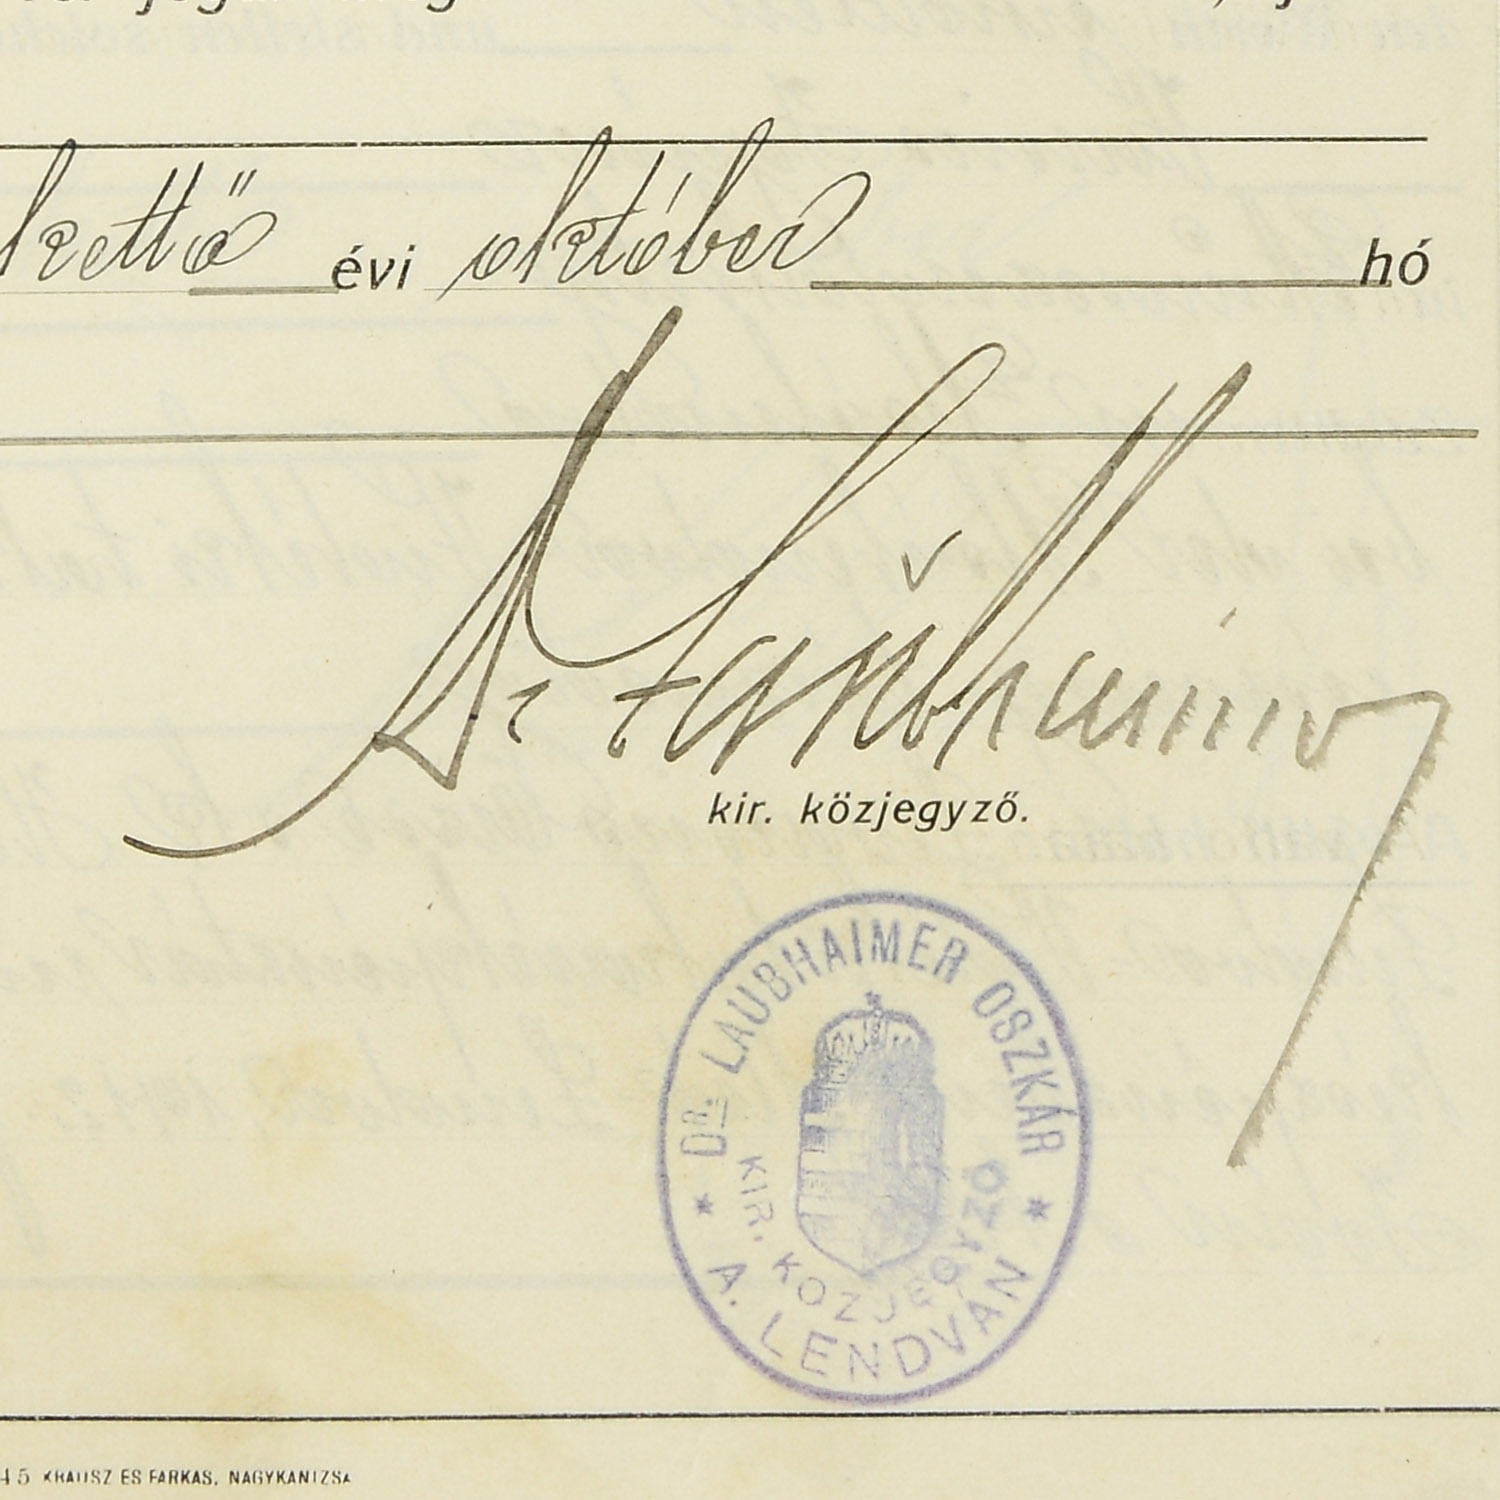 kettő évi október hó
Dr Laubhaimer
kir. közjegyző.
DR. LAUBHAIMER OSZKÁR
KIR. KÖZJEGYZŐ
* A. LENDVÁN *
45 KRAUSZ ÉS FARKAS, NAGYKANIZSA